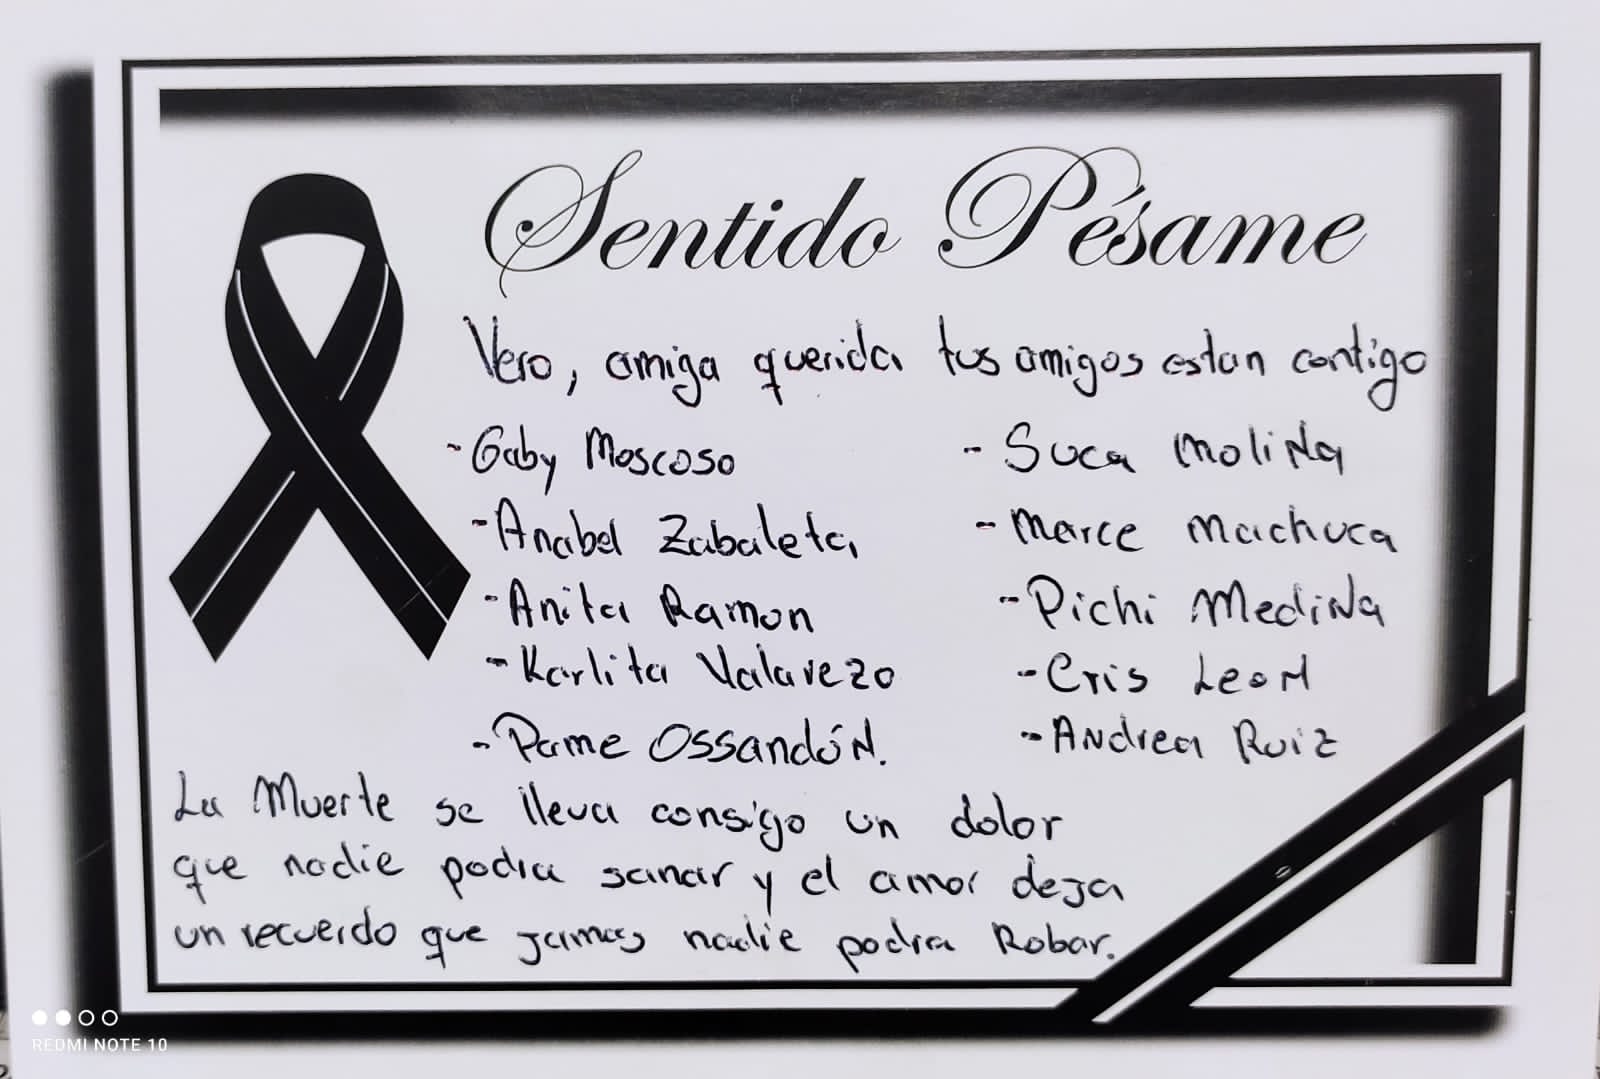 Sentido Pésame
Vero, amiga querida tus amigos estan contigo
- Gaby Moscoso
- Anabel Zabaleta
- Anita Ramon
- Karlita Valarezo
- Pame Ossandón.
- Suca Molina
- Marce Machuca
- Pichi Medina
- Cris Leon
- Andrea Ruiz
La Muerte se lleva consigo un dolor
que nadie podra sanar y el amor deja
un recuerdo que jamas nadie podra Robar.
REDMI NOTE 10